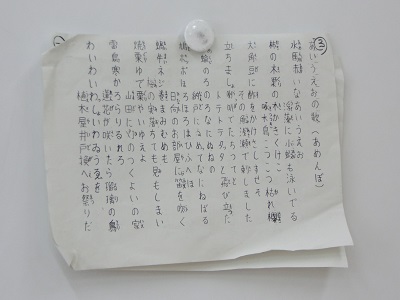 あいうえおの歌(あめんぼ)
水馬赤いなあいうえお
浮藻に小蝦も泳いでる
柿の木栗の木かきくけこ
啄木鳥こつこつ枯れ欅
大角豆に酢をかけさしすせそ
その魚浅瀬で刺しました
立ちましょ喇叭でたちつてと
トテトテタッタと飛び立った
のろのろなにぬねの
納戸にぬめってなにねばる
鳩ぽっぽほろほろはひふへほ
日向のお部屋に笛を吹く
蝸牛ネジ巻まみむめも
梅の実落ちても見もしまい
焼栗ゆで栗やいゆえよ
山田に灯のつくよいの家
雷鳥寒かろらりるれろ
蓮花が咲いたら瑠璃の鳥
わいわいわっしょいわゐうゑを
植木屋井戸換へお祭りだ